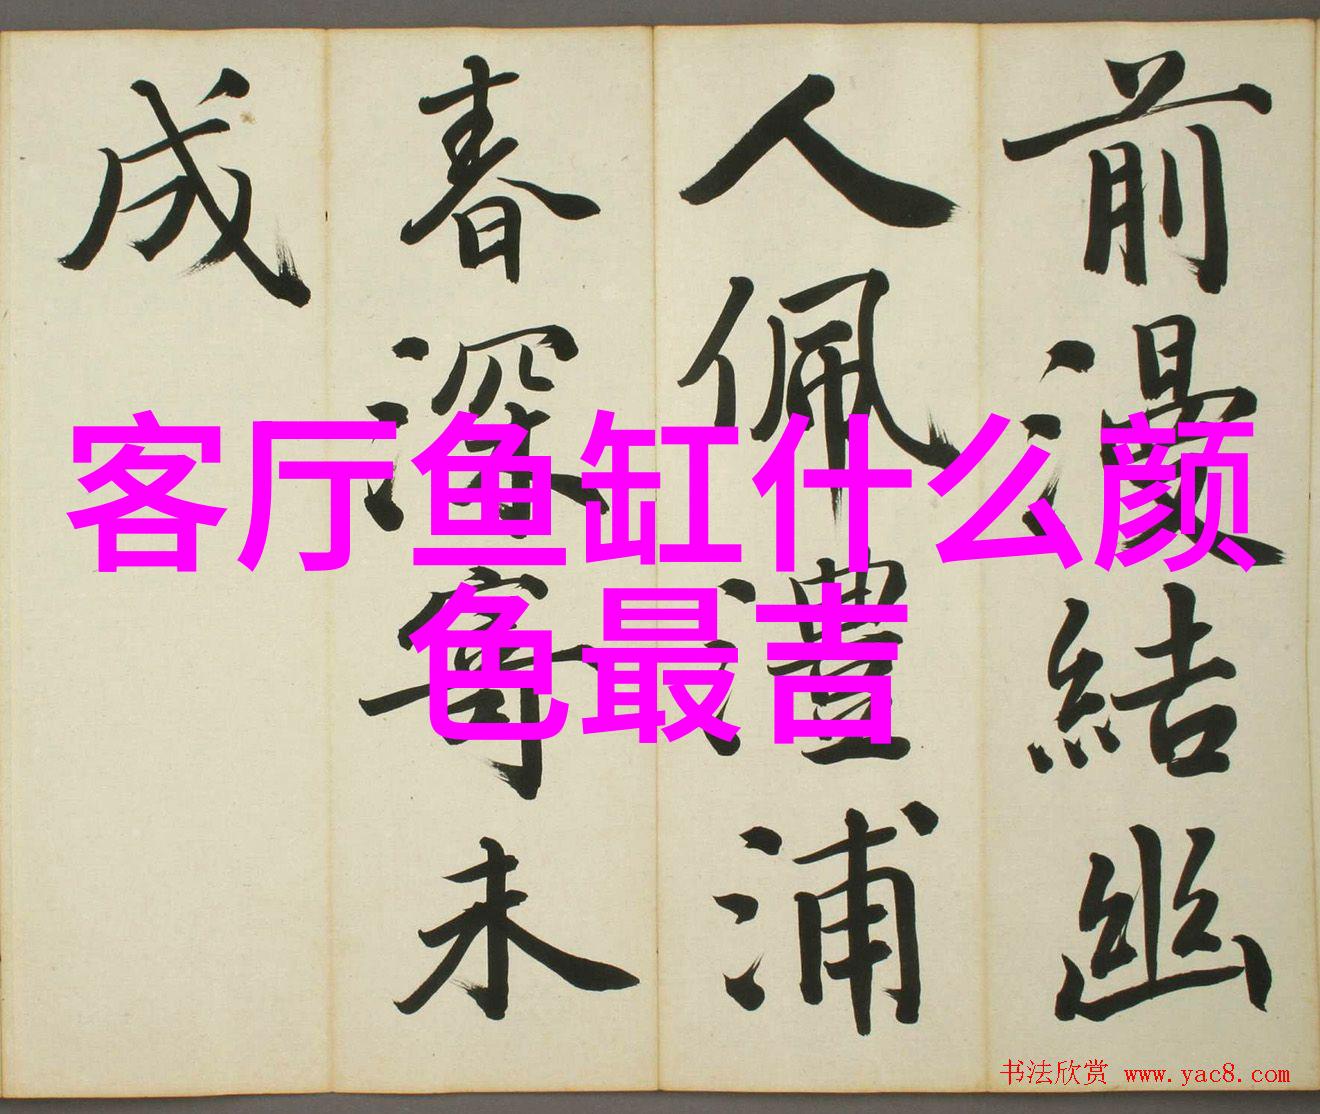 前湯結幽
人佩澧浦
春深寄未
成
客厅鱼缸什么颜
色最吉
书法欣赏 www.yac8.com